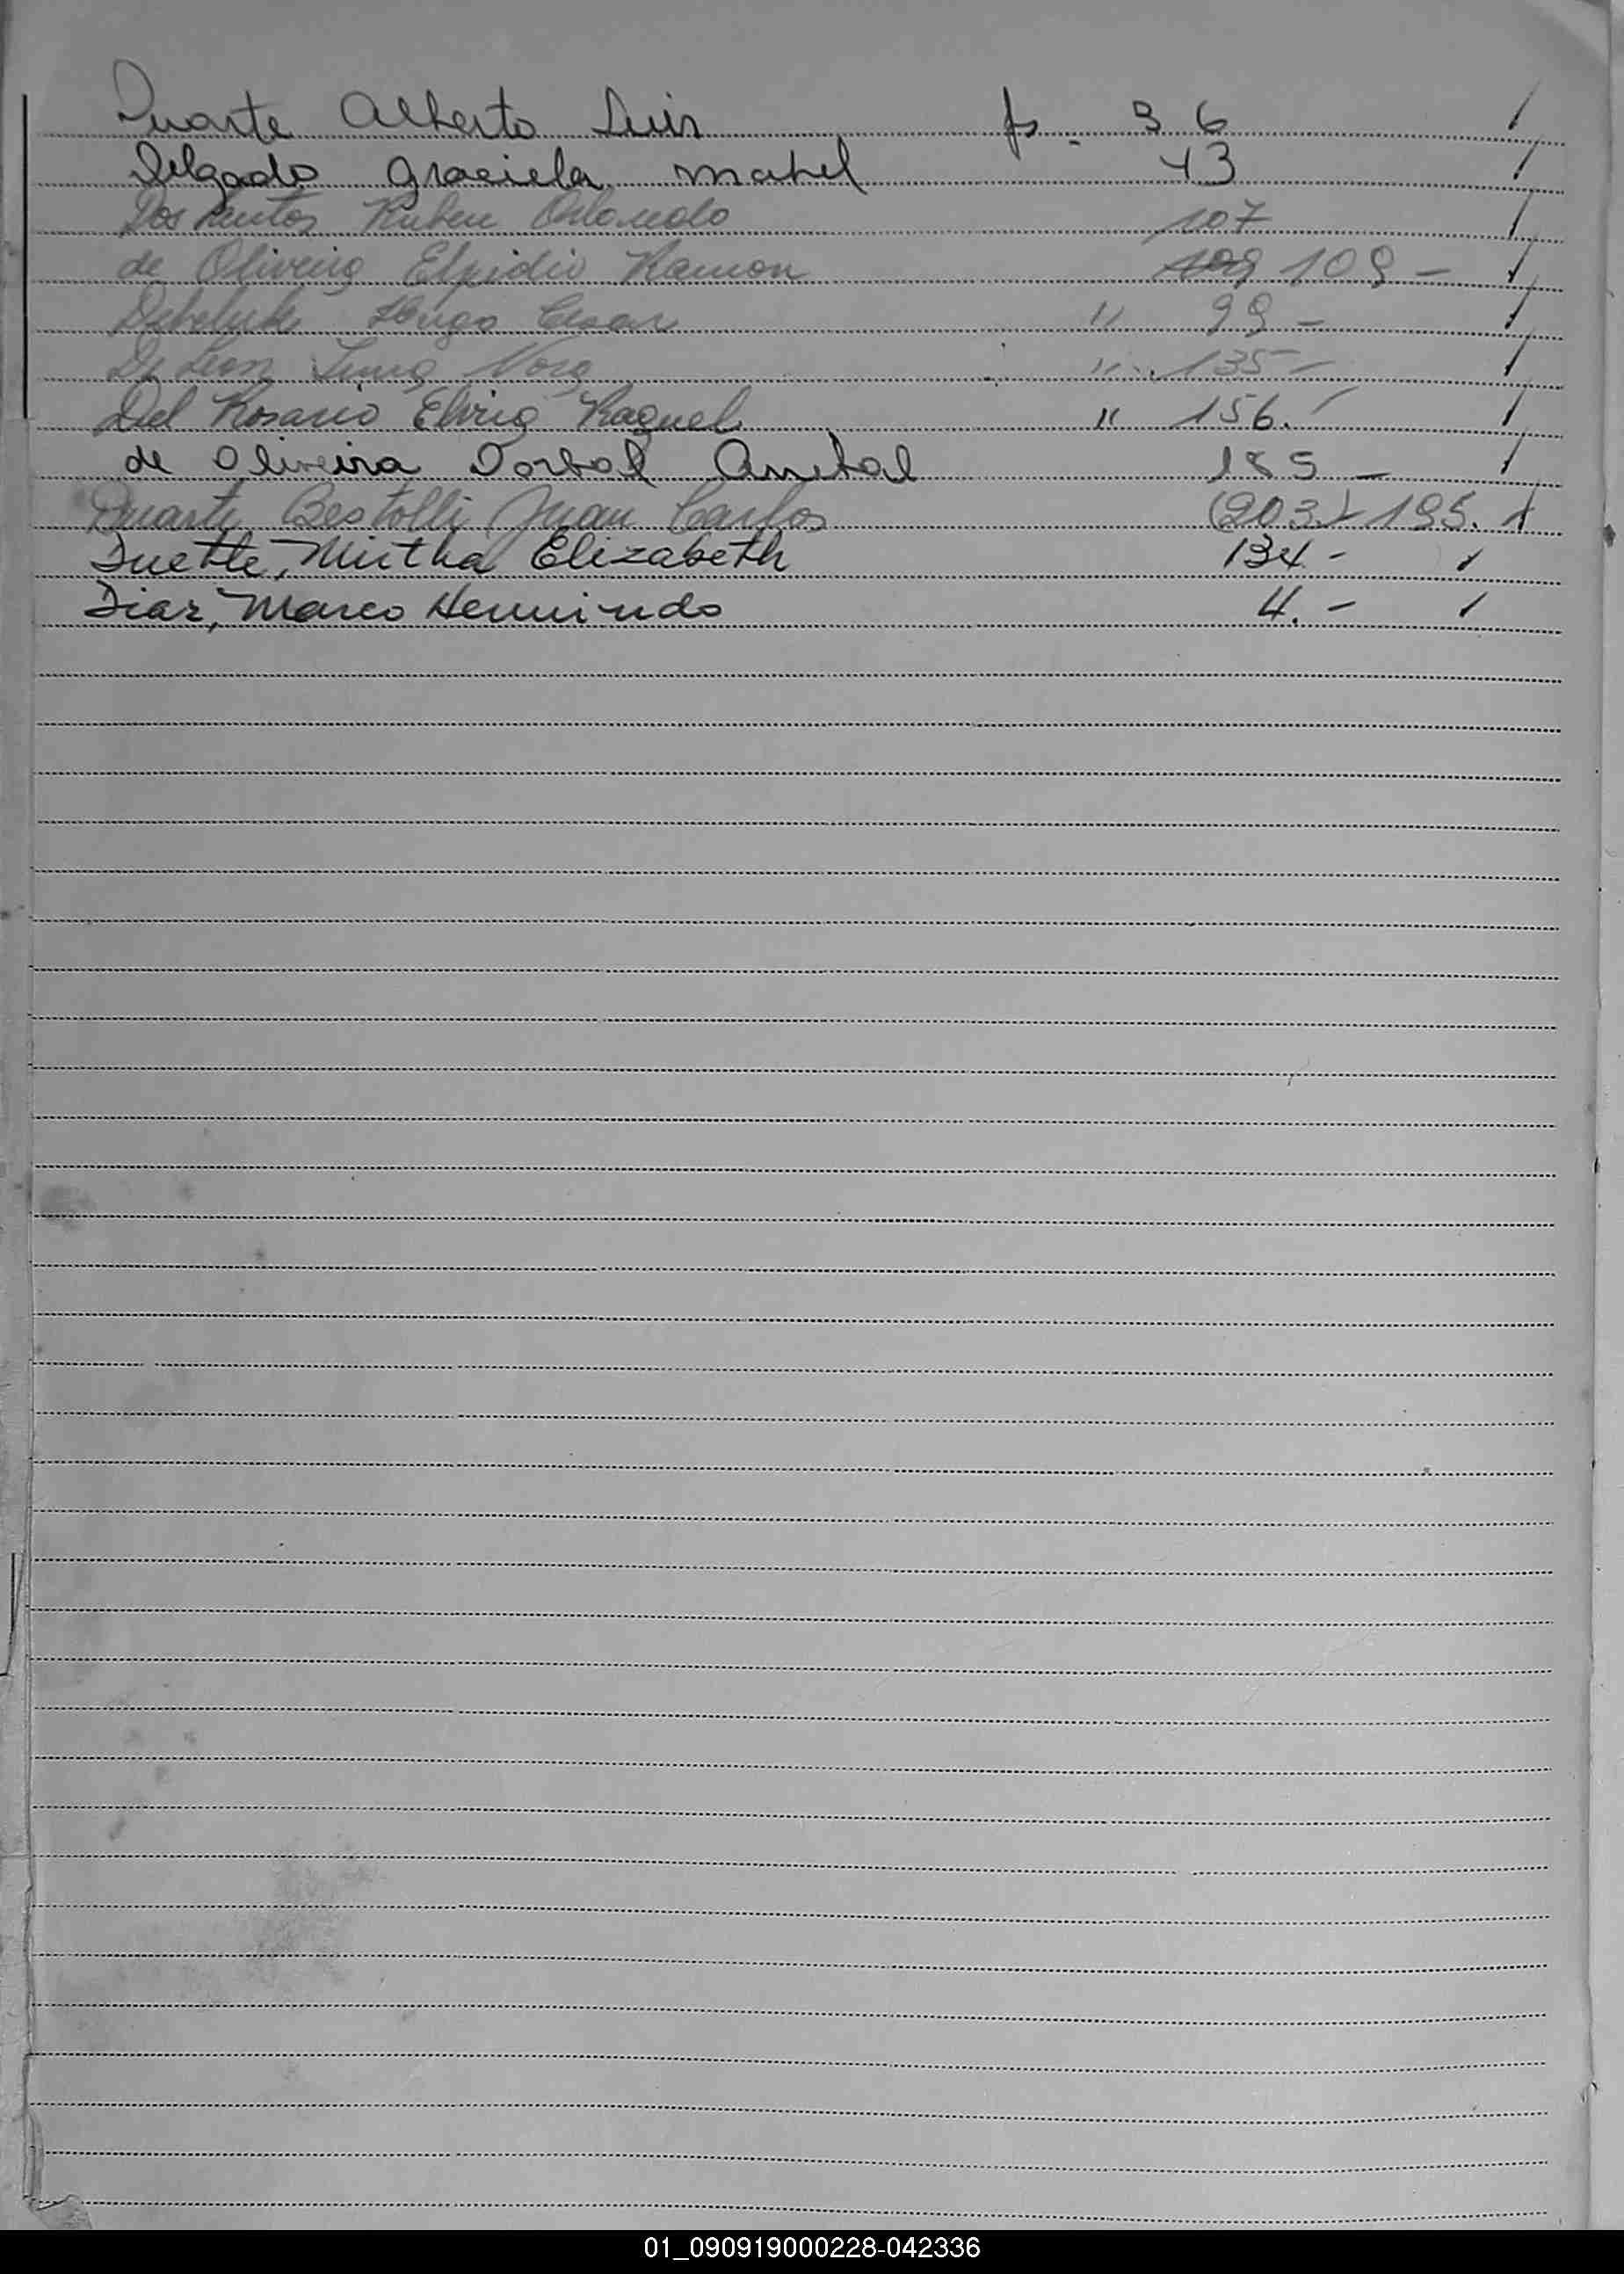 Duarte Alberto Luis fs. 36 /
Delgado Graciela Mabel 43 /
Dos Santos Ruben Orlando 107 /
de Oliveira Elpidio Ramon 109 109 - /
Hugo Cesar " 99 - /
De Leon Nora " 135 - /
Del Rosario Elvira Raquel " 156. /
de Oliveira Dorbal Anibal 185 - /
Duarte Bestolli Juan Carlos (203) - 195. /
Duette, Mirtha Elizabeth 134 - /
Diaz, Marco Hermindo 4. - /
01_090919000228-042336